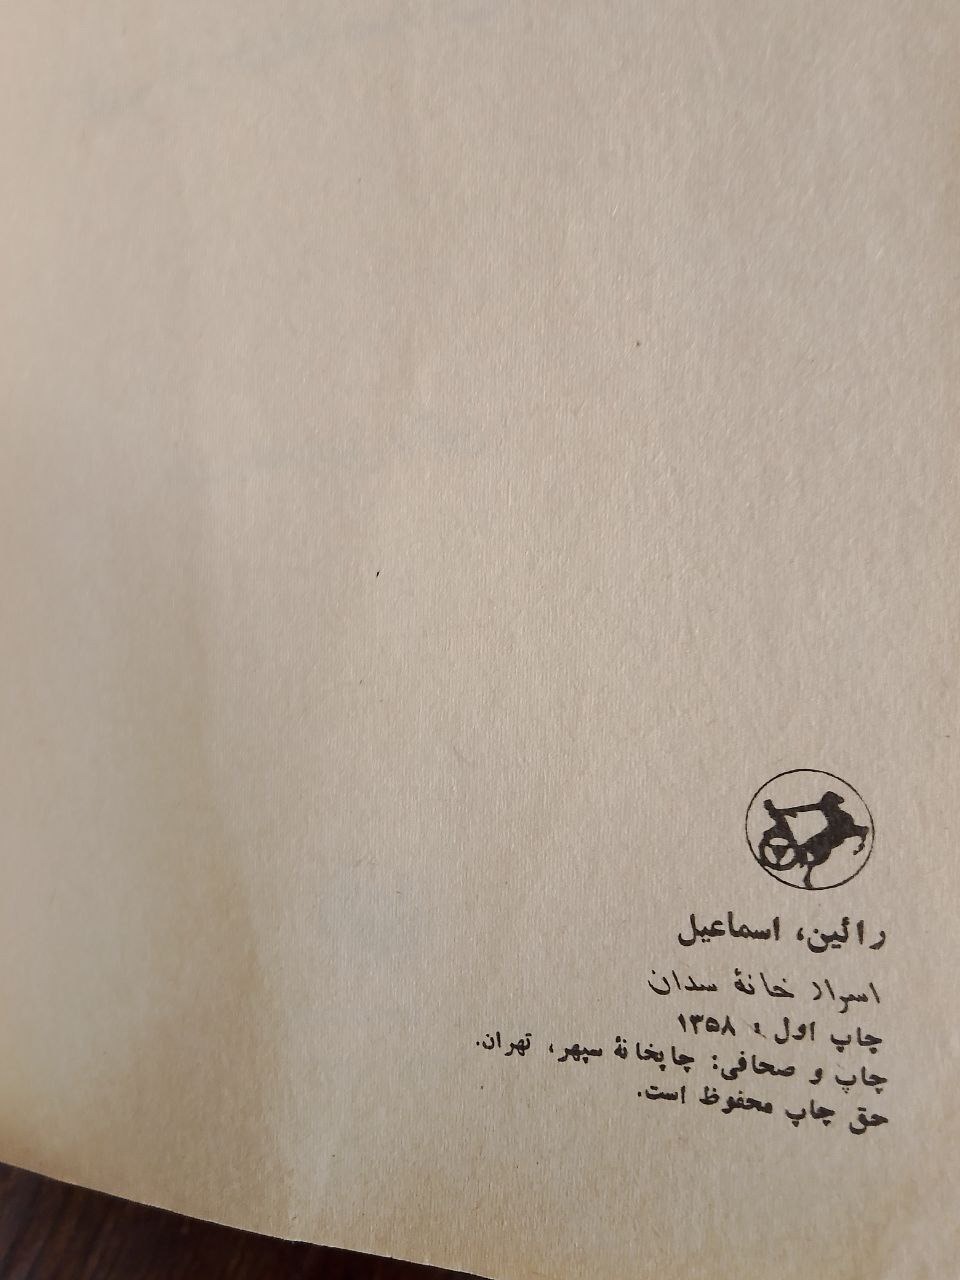 رائین، اسماعیل
اسرار خانهٔ سدان
چاپ اول: ۱۳۵۸
چاپ و صحافی: چاپخانهٔ سپهر، تهران.
حق چاپ محفوظ است.